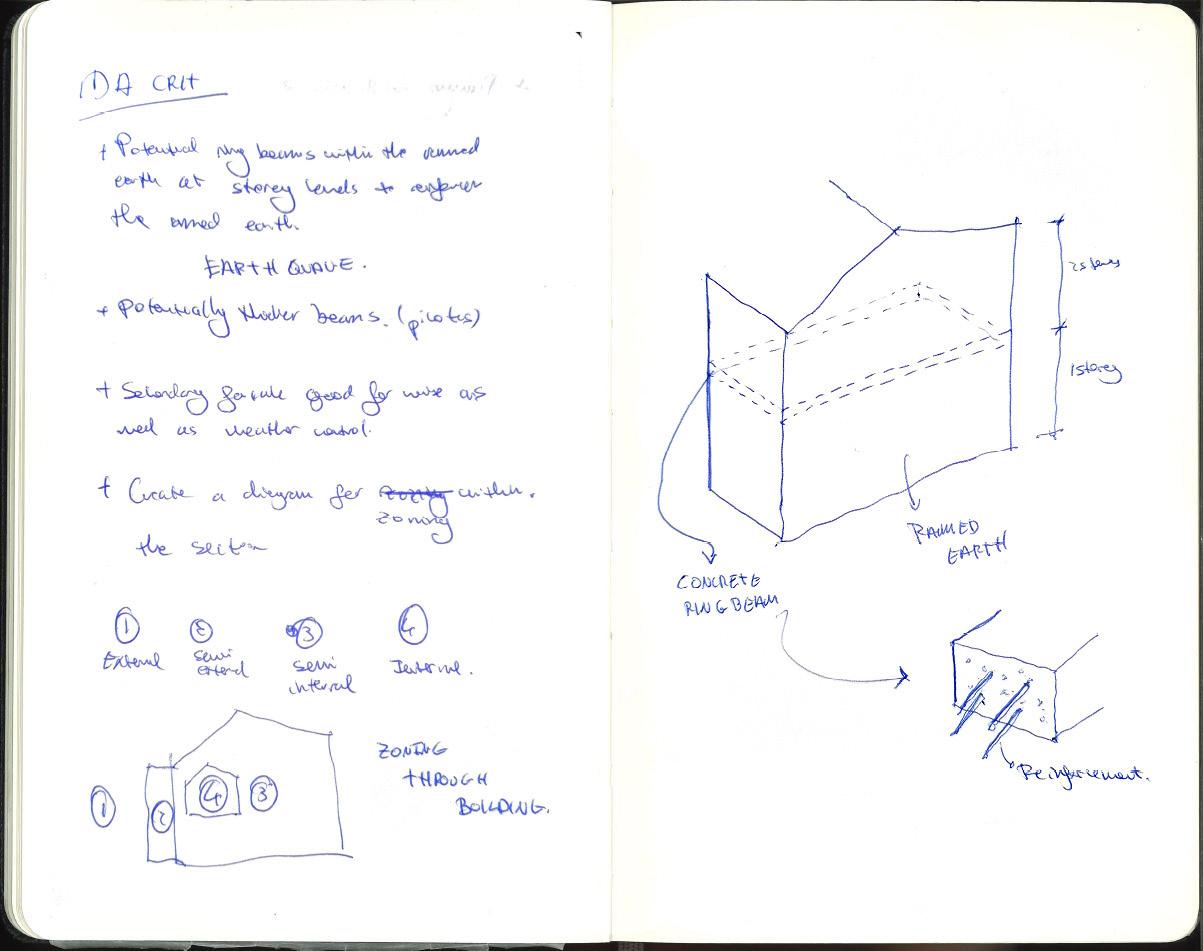 DA CRIT
+ Potential ring beams within the rammed
earth at storey levels to
the rammed earth.
EARTHQUAKE.
+ Potentially thicker beams. (pilotis)
+ Secondary facade good for noise as
well as weather control.
+ Create a diagram for zoning within.
zoning
the section
1 2 3 4
External semi external semi internal Internal.
1 2 4 3
ZONING
THROUGH
BUILDING.
2 storey
1 storey
RAMMED
EARTH
CONCRETE
RING BEAM
Reinforcement.